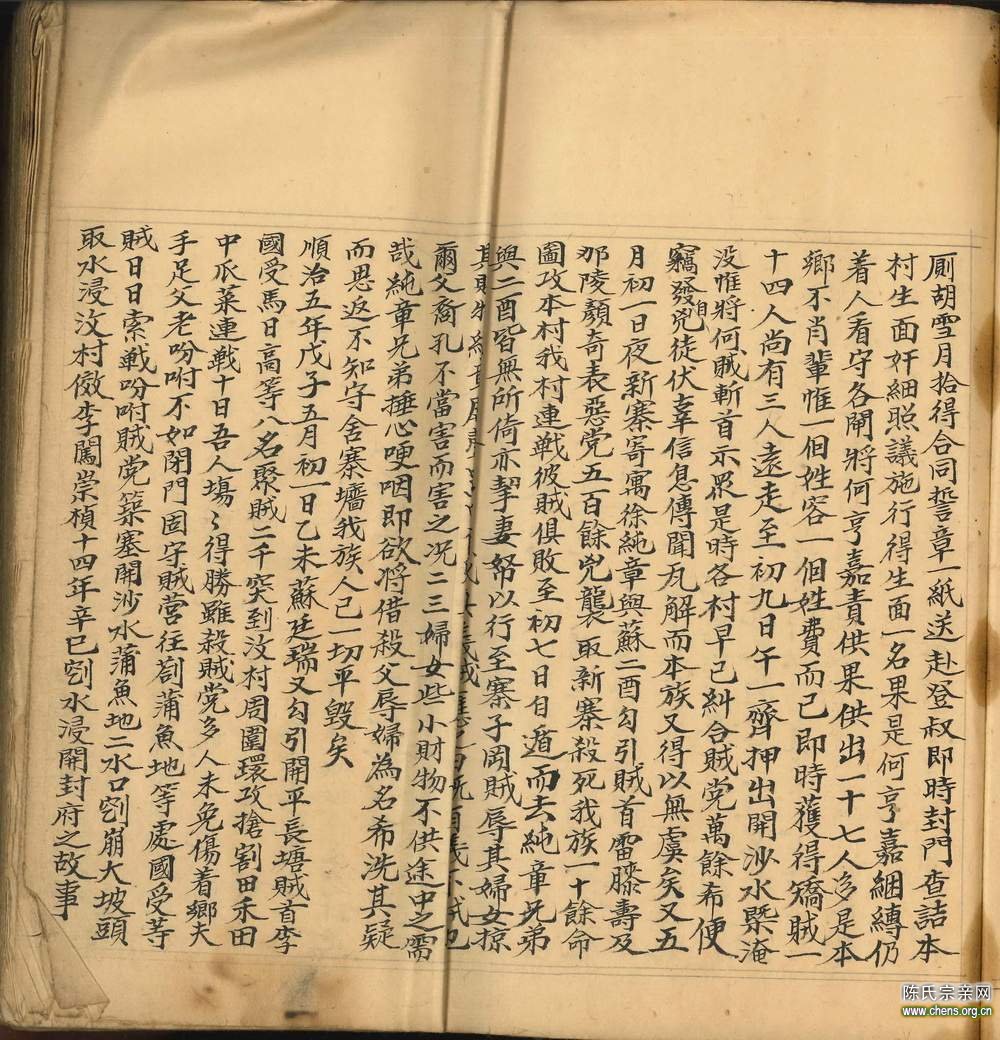 厠胡雪月拾得合同誓章一紙送赴登叔即時封門查詰本
村生面奸細照議施行得生面一名果是何亨嘉綑縛仍
着人看守各閘將何亨嘉責供果供出一十七人多是本
鄉不肖輩惟一個姓容一個姓費而已即時獲得矯賊一
十四人尚有三人遠走至初九日午一齊押出開沙水槩淹
没惟將何賊斬首示眾是時各村早已糾合賊党萬餘希便
竊發兇徒伏辜信息傳聞自瓦解而本族又得以無虞矣又五
月初一日夜新寨寄寓徐純章與蘇二酉勾引賊首雷滕壽及
那陵顏奇表惡党五百餘兇襲取新寨殺死我族一十餘命
圖攻本村我村連戦彼賊俱敗至初七日自遁而去純章兄弟
與二酉皆無所倚亦挈妻帑以行至寨子岡賊辱其婦女掠
其財物
爾父裔孔不當害而害之况二三婦女些小財物不供途中之需
哉純章兄弟捶心哽咽即欲将借殺父辱婦為名希洗其疑
而思返不知守舍寨墻我族人已一切平毀矣
順治五年戊子五月初一日乙未蘇廷瑞又勾引開平長塘賊首李
國受馬日高等八名聚賊二千突到汶村周圍環攻搶割田禾田
中瓜菜連戦十日吾人塲〻得勝雖殺賊党多人未免傷着鄉夫
手足父老吩咐不如閉門固守賊營往劄蒲魚地等處國受等
賊日日索戦吩咐賊党築塞開沙水蒲魚地二水口劉崩大坡頭
取水浸汶村傚李闖崇楨十四年辛巳劉水浸開封府之故事
陈氏宗亲网
www.chens.org.cn